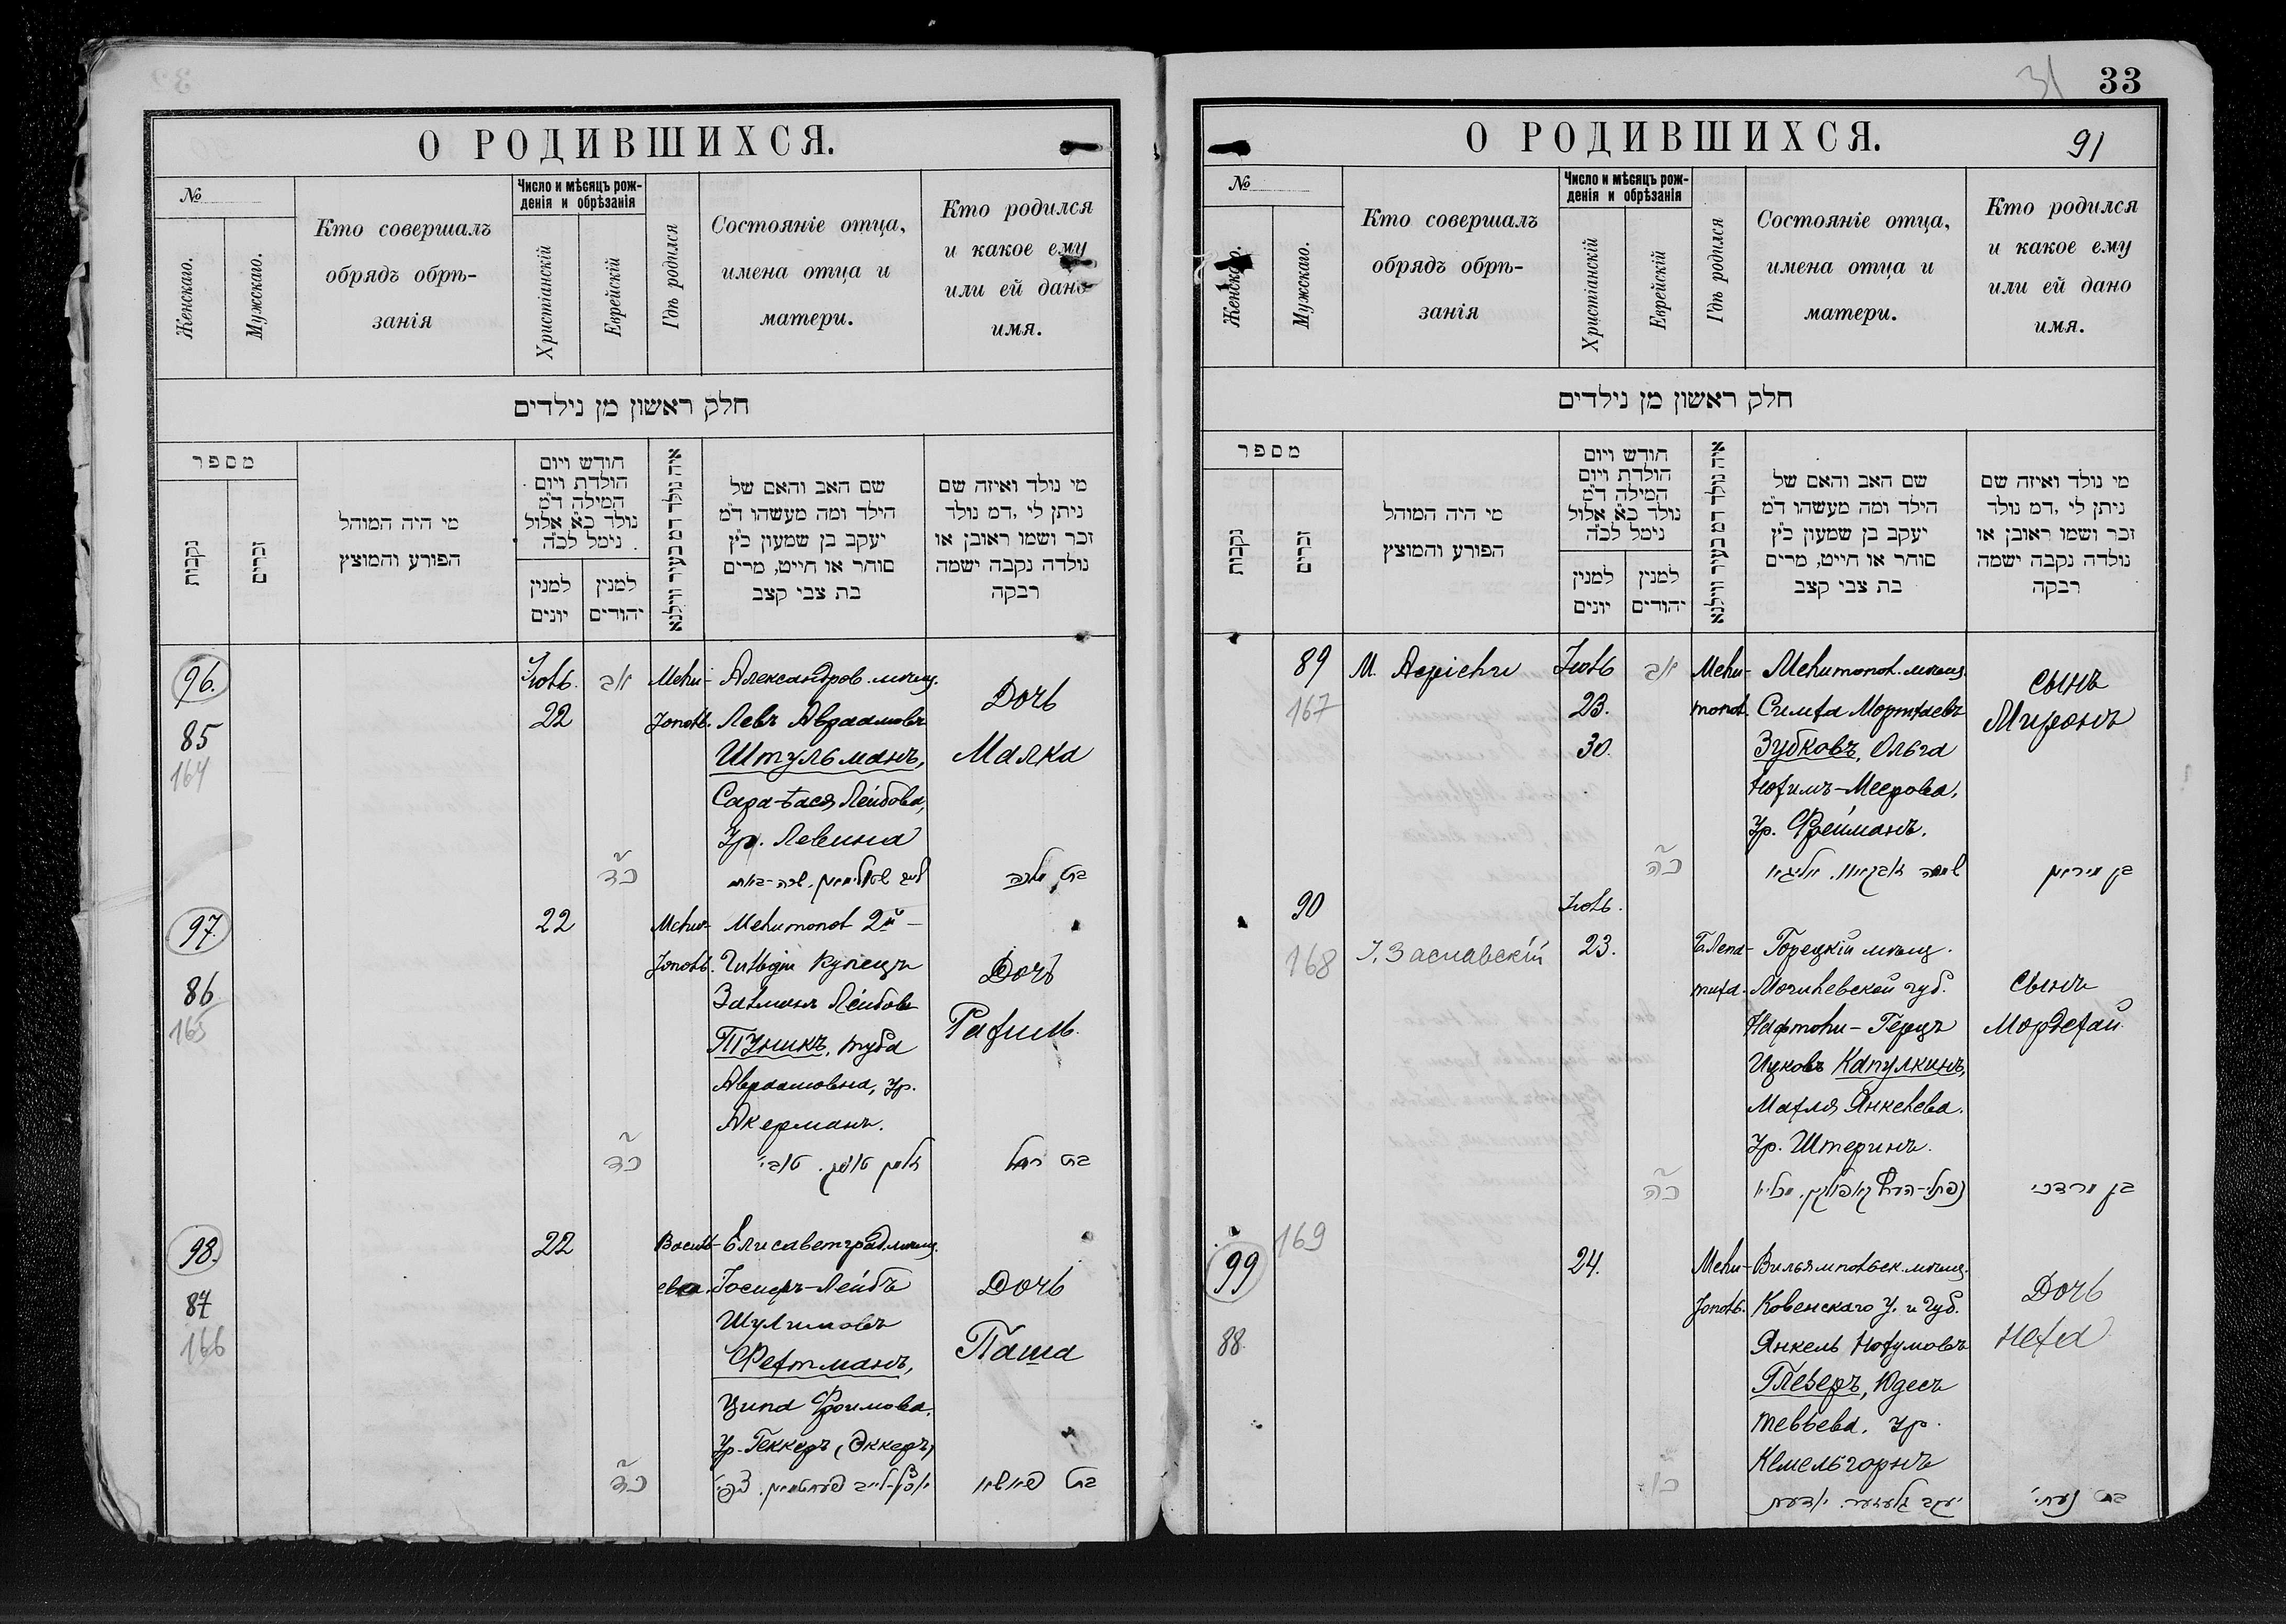 О РОДИВШИХСЯ.
№
Женскаго.
Мужскаго.
Кто совершалъ
обрядъ обрѣ-
занія
Число и мѣсяцъ рож-
денія и обрѣзанія
Христіанскій
Еврейскій
Гдѣ родился
Состояніе отца,
имена отца и
матери.
Кто родился
и какое ему
или ей дано
имя.
חלק ראשון מן נילדים
מספר
נקבות
זכרים
מי היה המוהל
הפורע והמוצץ
חודש ויום
הולדת ויום
המילה ד"מ
נולד כ"א אלול
נימל לכ"ה
למנין
יונים
למנין
יהודים
איה נולד דמ בעיר ווילנא
שם האב והאם של
הילד ומה מעשהו ד"מ
יעקב בן שמעון כ"ץ
סוחר או חייט, מרים
בת צבי קצב
מי נולד ואיזה שם
ניתן לי, דמ נולד
זכר ושמו ראובן או
נולדה נקבה ישמה
רבקה
96.
85
164
Іюль.
22
אב
כד
Мели-
тополь.
Александров. мѣщ.
Левъ Абраамовъ
Штульманъ,
Сара-Бася Лейбова,
Ур. Левина
Дочь
Малка
בת מלכה
97.
86
165
22
כד
Мели-
тополь.
Мелитопол 2й
Гильдіи Купецъ
Залманъ Лейбовъ
Туникъ, Туба
Абраамовна, ур.
Акерманъ.
Дочь
Рахиль.
בת רחל
98.
87
166
22
כד
Василь-
евка.
Елисаветград. мѣщ.
Іосифъ-Лейбъ
Шулимовъ
Фехтманъ,
Ципа Фроимова,
Ур. Геккеръ (Эккеръ)
Дочь
Паша
33
31
О РОДИВШИХСЯ.
91
№
Женскаго.
Мужскаго.
Кто совершалъ
обрядъ обрѣ-
занія
Число и мѣсяцъ рож-
денія и обрѣзанія
Христіанскій
Еврейскій
Гдѣ родился
Состояніе отца,
имена отца и
матери.
Кто родился
и какое ему
или ей дано
имя.
חלק ראשון מן נילדים
מספר
נקבות
זכרים
מי היה המוהל
הפורע והמוצץ
חודש ויום
הולדת ויום
המילה ד"מ
נולד כ"א אלול
נימל לכ"ה
למנין
יונים
למנין
יהודים
איה נולד דמ בעיר ווילנא
שם האב והאם של
הילד ומה מעשהו ד"מ
יעקב בן שמעון כ"ץ
סוחר או חייט, מרים
בת צבי קצב
מי נולד ואיזה שם
ניתן לי, דמ נולד
זכר ושמו ראובן או
נולדה נקבה ישמה
רבקה
89
167
М.
Іюль
23.
30.
אב
כה
Мели-
топол.
Мелитопол. мѣщ.
Симха Мортхаевъ
Зубковъ, Ольга
Нохимъ-Меерова,
Ур. Фрейманъ.
сынъ
Миронъ
בן מירון
90
168
І. Заславскій
Іюль.
23.
כה
Горецкій мѣщ.
Могилевской губ.
Нафтоли-Герцъ
Ицковъ Капулкинъ,
Махля Янкелева.
Ур. Штеринъ.
сынъ
Мордехай.
בן מרדכי
169
99
88.
24.
Мели-
тополь.
Вильямпольск. мѣщ.
Ковенскаго У. и Губ.
Янкель Нохумовъ
Глезеръ, Юдесъ
Тевьева, ур.
Кемельгорнъ
Дочь
Неха